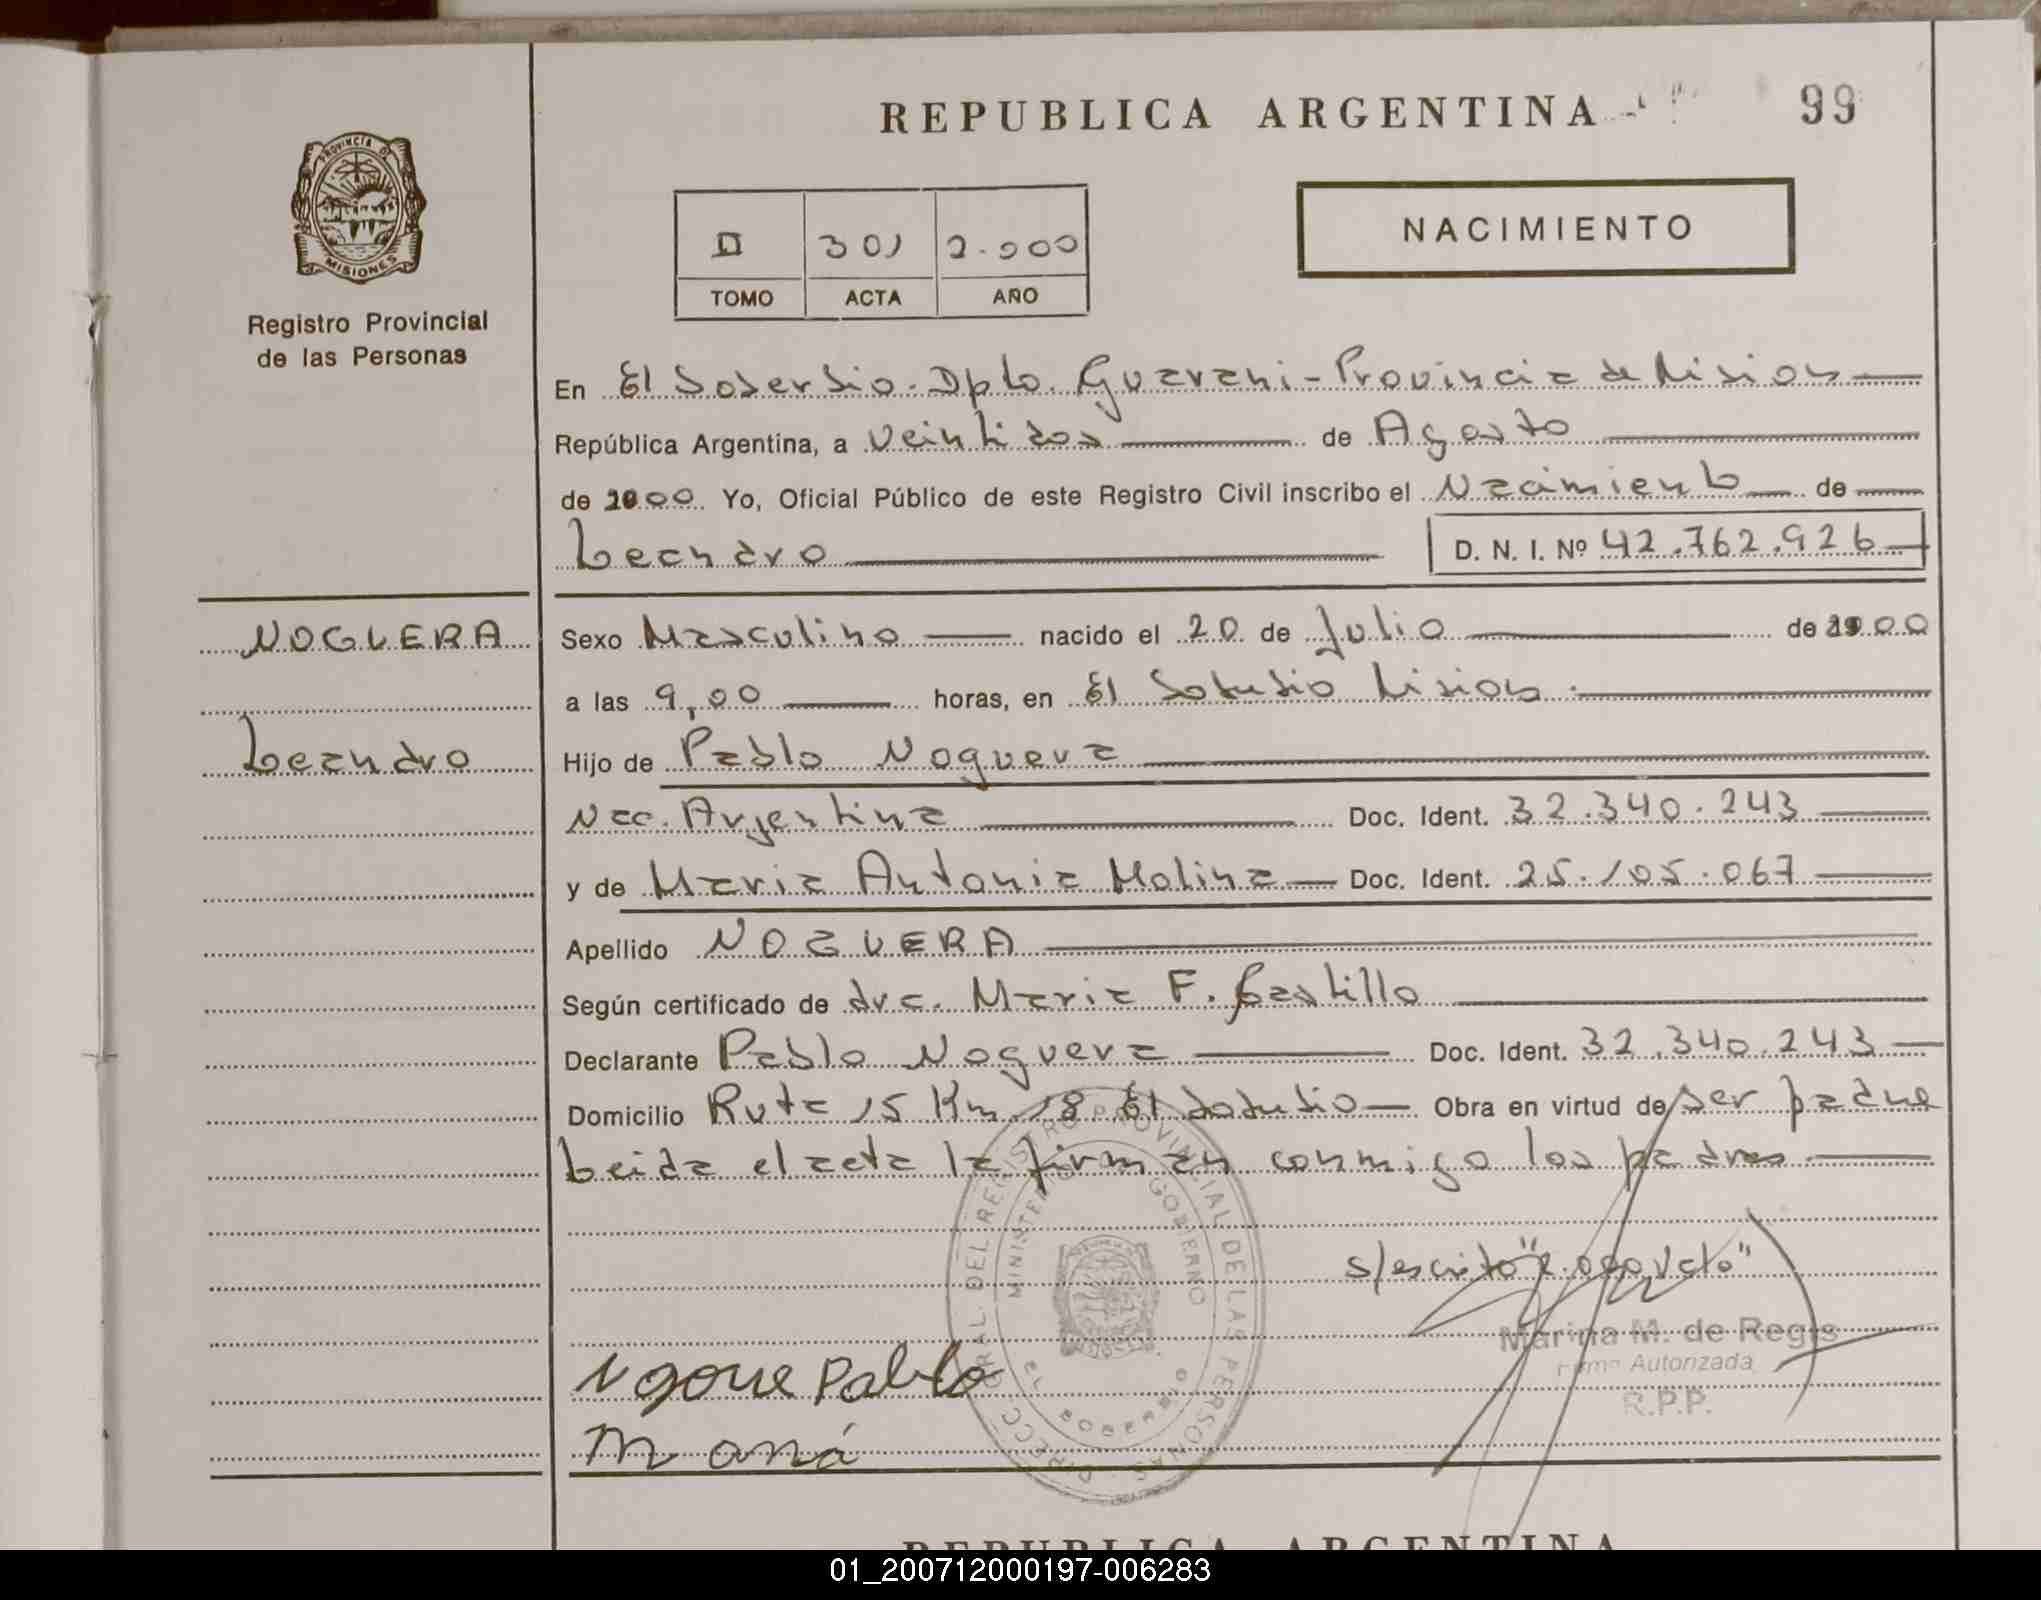 REPUBLICA ARGENTINA
99
PROVINCIA DE
MISIONES
Registro Provincial
de las Personas
II 301 2.000
TOMO ACTA AÑO
NACIMIENTO
En El Soberbio. Dpto. Guarani - Provincia de Misiones
República Argentina, a veintidos de Agosto
de 2000 Yo, Oficial Público de este Registro Civil inscribo el Nacimiento de
Leandro D. N. I. Nº 42.762.926
NOGUERA
Leandro
Sexo Masculino nacido el 20 de Julio de 2000
a las 9,00 horas, en El Soberbio Misiones
Hijo de Pablo Noguera
Nac. Argentina Doc. Ident. 32.340.243
y de Maria Antonia Molina Doc. Ident. 25.105.067
Apellido NOGUERA
Según certificado de dra. Maria F. Castillo
Declarante Pablo Noguera Doc. Ident. 32.340.243
Domicilio Ruta 15 Km 18 El Soberbio Obra en virtud de ser padre
Leida el acta la firman conmigo los padres
DIRECC. GRAL. DEL REGISTRO PROVINCIAL DE LAS PERSONAS
MINISTERIO GOBIERNO
EL SOBERBIO
s/escrito
Marina M. de Regis
Firma Autorizada
R.P.P.
Ngoue Pablo
REPUBLICA ARGENTINA
01_200712000197-006283